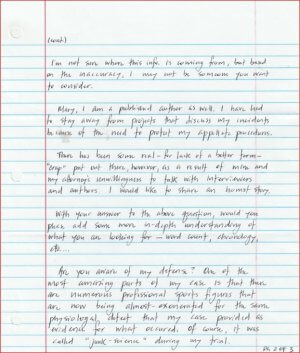 (cont.)
I'm not sure where this info. is coming from, but based
on the inaccuracy, I may not be someone you want
to consider.
Mary, I am a published author as well. I have had
to stay away from projects that discuss my incidents
because of the need to protect my appellate procedures.
There has been some real - for lack of a better term -
"crap" put out there, however, as a result of mine and
my attorney's unwillingness to talk with interviewers
and authors. I would like to share an honest story.
With your answer to the above question, would you
please add some more in-depth understanding of
what you are looking for - word count, chronology,
etc....
Are you aware of my defense? One of the
most amazing parts of my case is that there
are numerous professional sports figures that
are now being almost exonerated for the same
physiological defect that my case provided as
evidence for what occurred. Of course, it was
called "junk-science" during my trial.
PG 2 OF 3